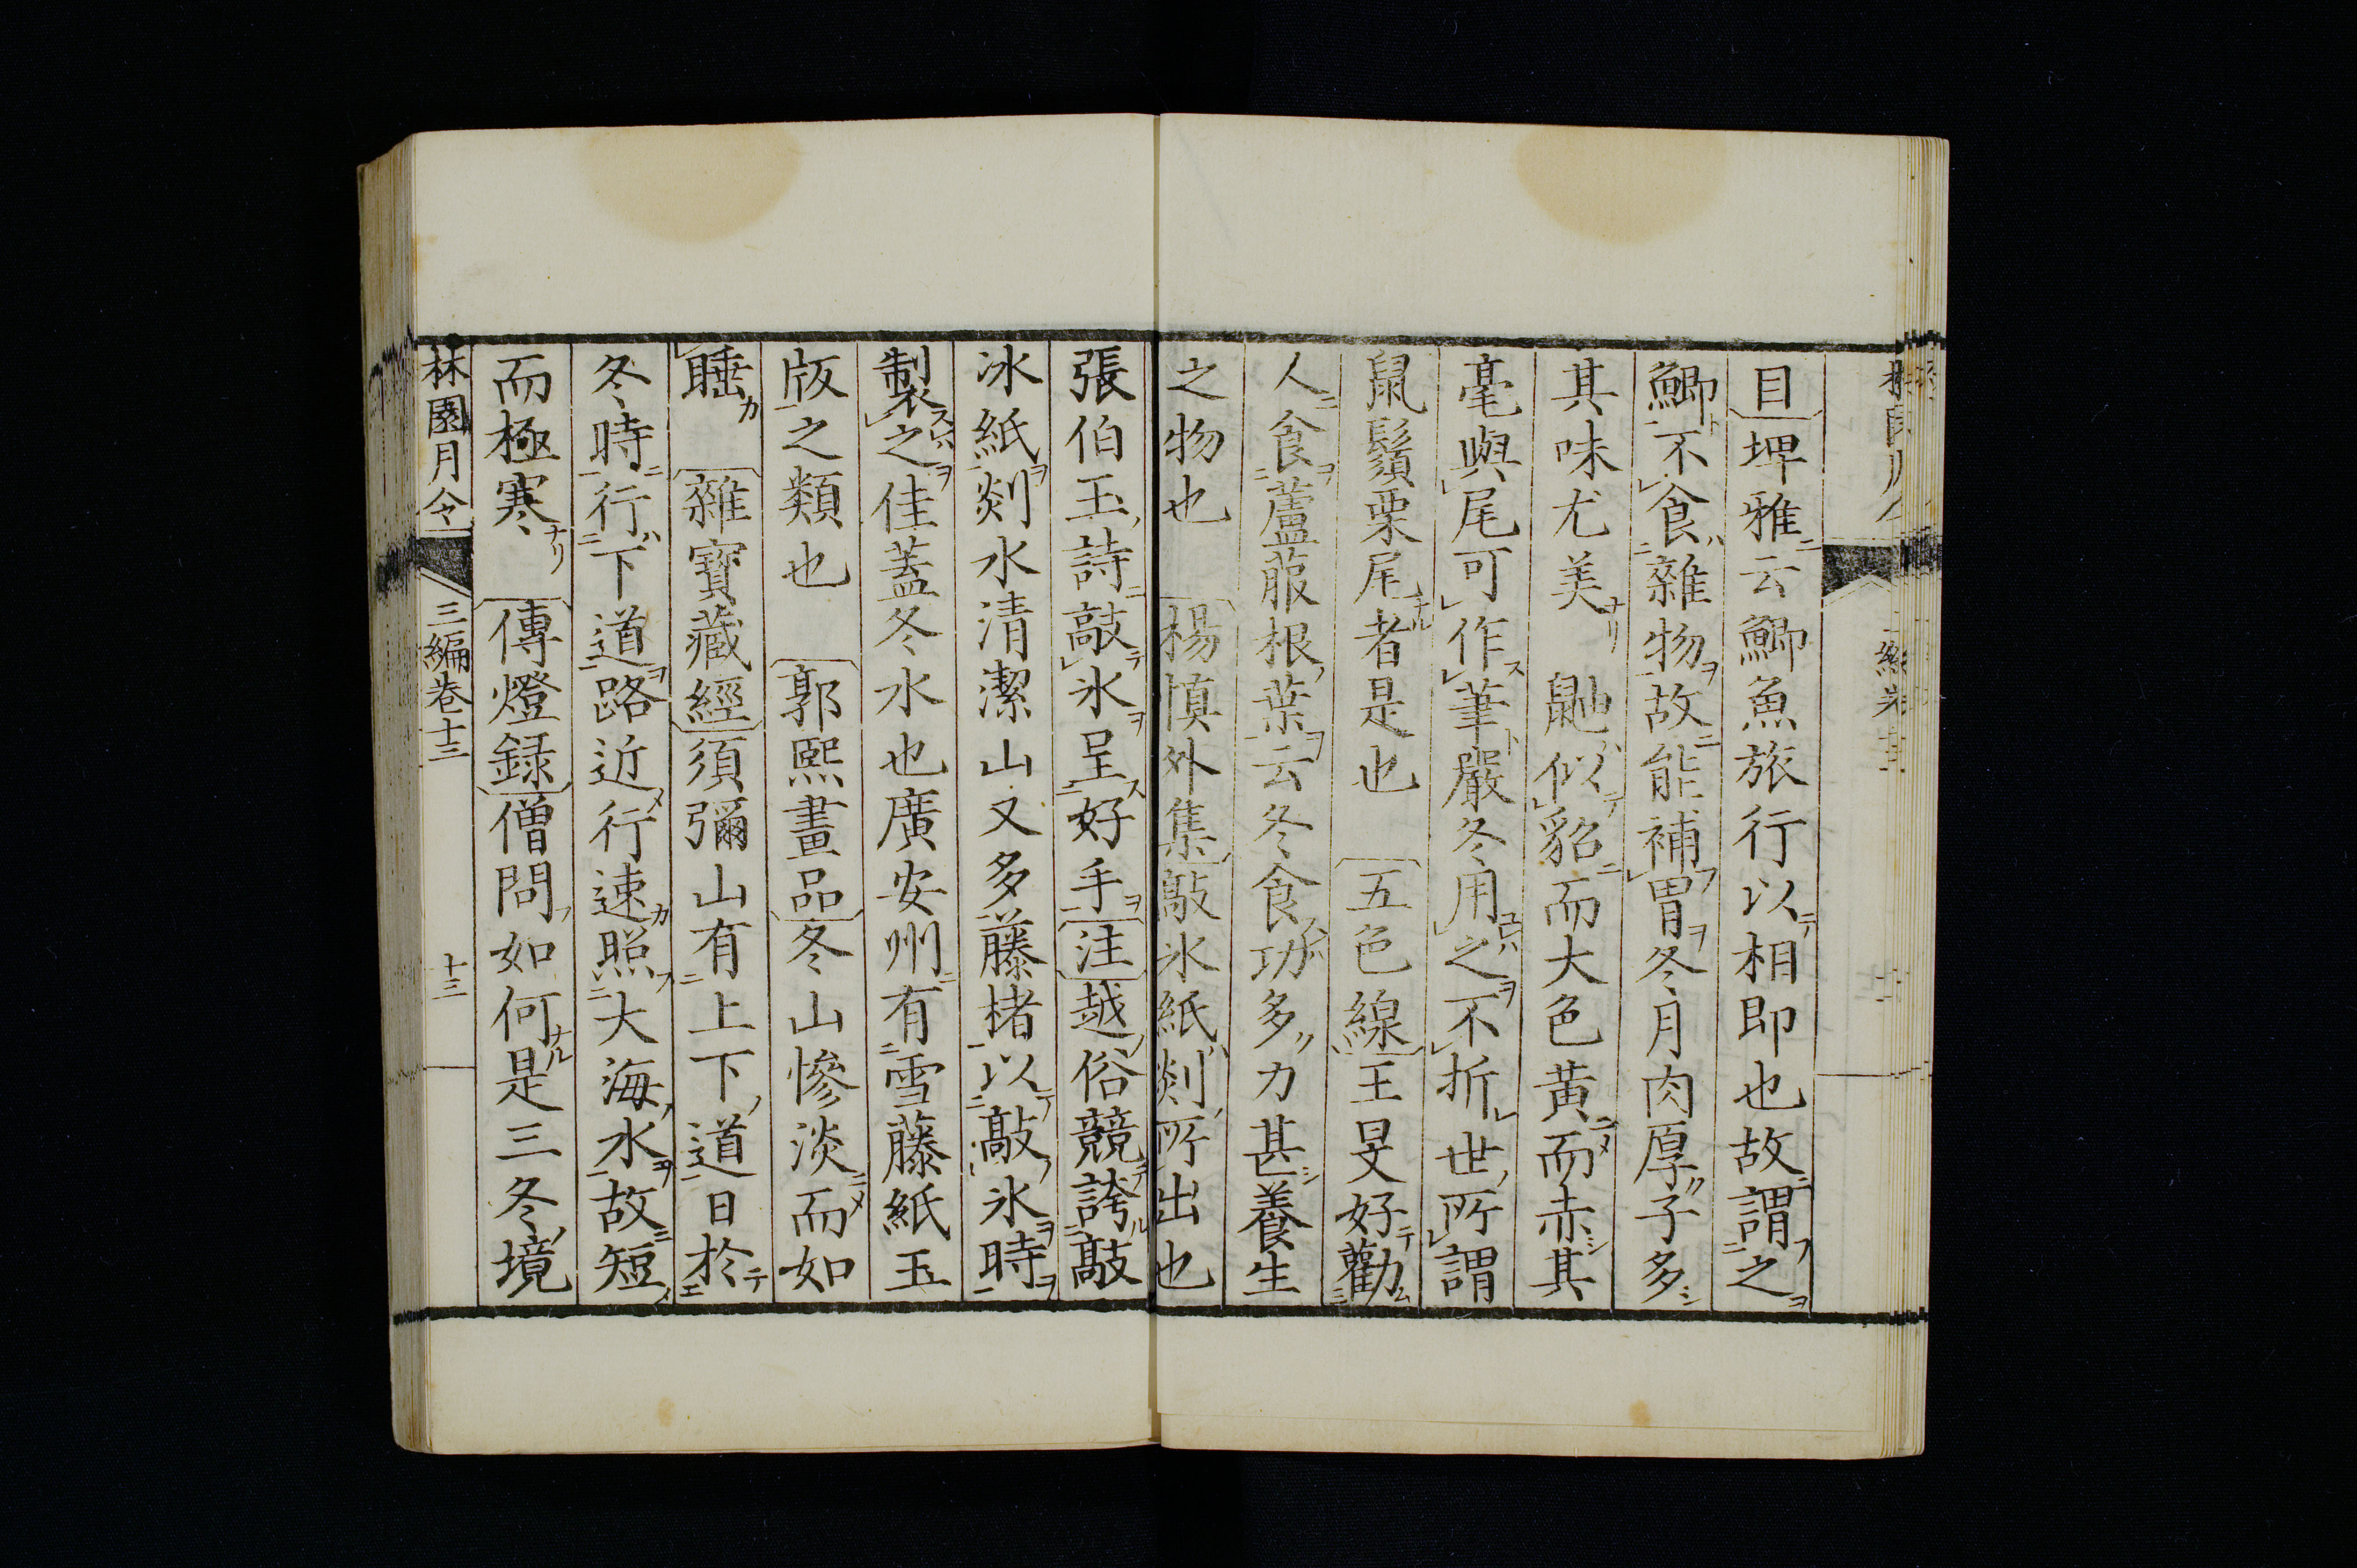 目埤雅云鯽魚旅行以相即也故謂之
鯽不食雜物故能補胃冬月肉厚子多
其味尤美　鼬似貂而大色黃而赤其
毫與尾可作筆嚴冬用之不折世所謂
鼠鬚栗尾者是也　五色線王旻好勸
人食蘆菔根葉云冬食功多力甚養生
之物也　楊慎外集敲氷紙剡所出也
張伯玉詩敲氷呈好手注越俗競誇敲
冰紙剡水清潔山又多藤楮以敲氷時
製之佳蓋冬水也廣安州有雪藤紙玉
版之類也　郭熙畫品冬山慘淡而如
睡　雜寶藏經須彌山有上下道日於
冬時行下道路近行速照大海水故短
而極寒　傳燈録僧問如何是三冬境
林園月令　三編卷十三　十三